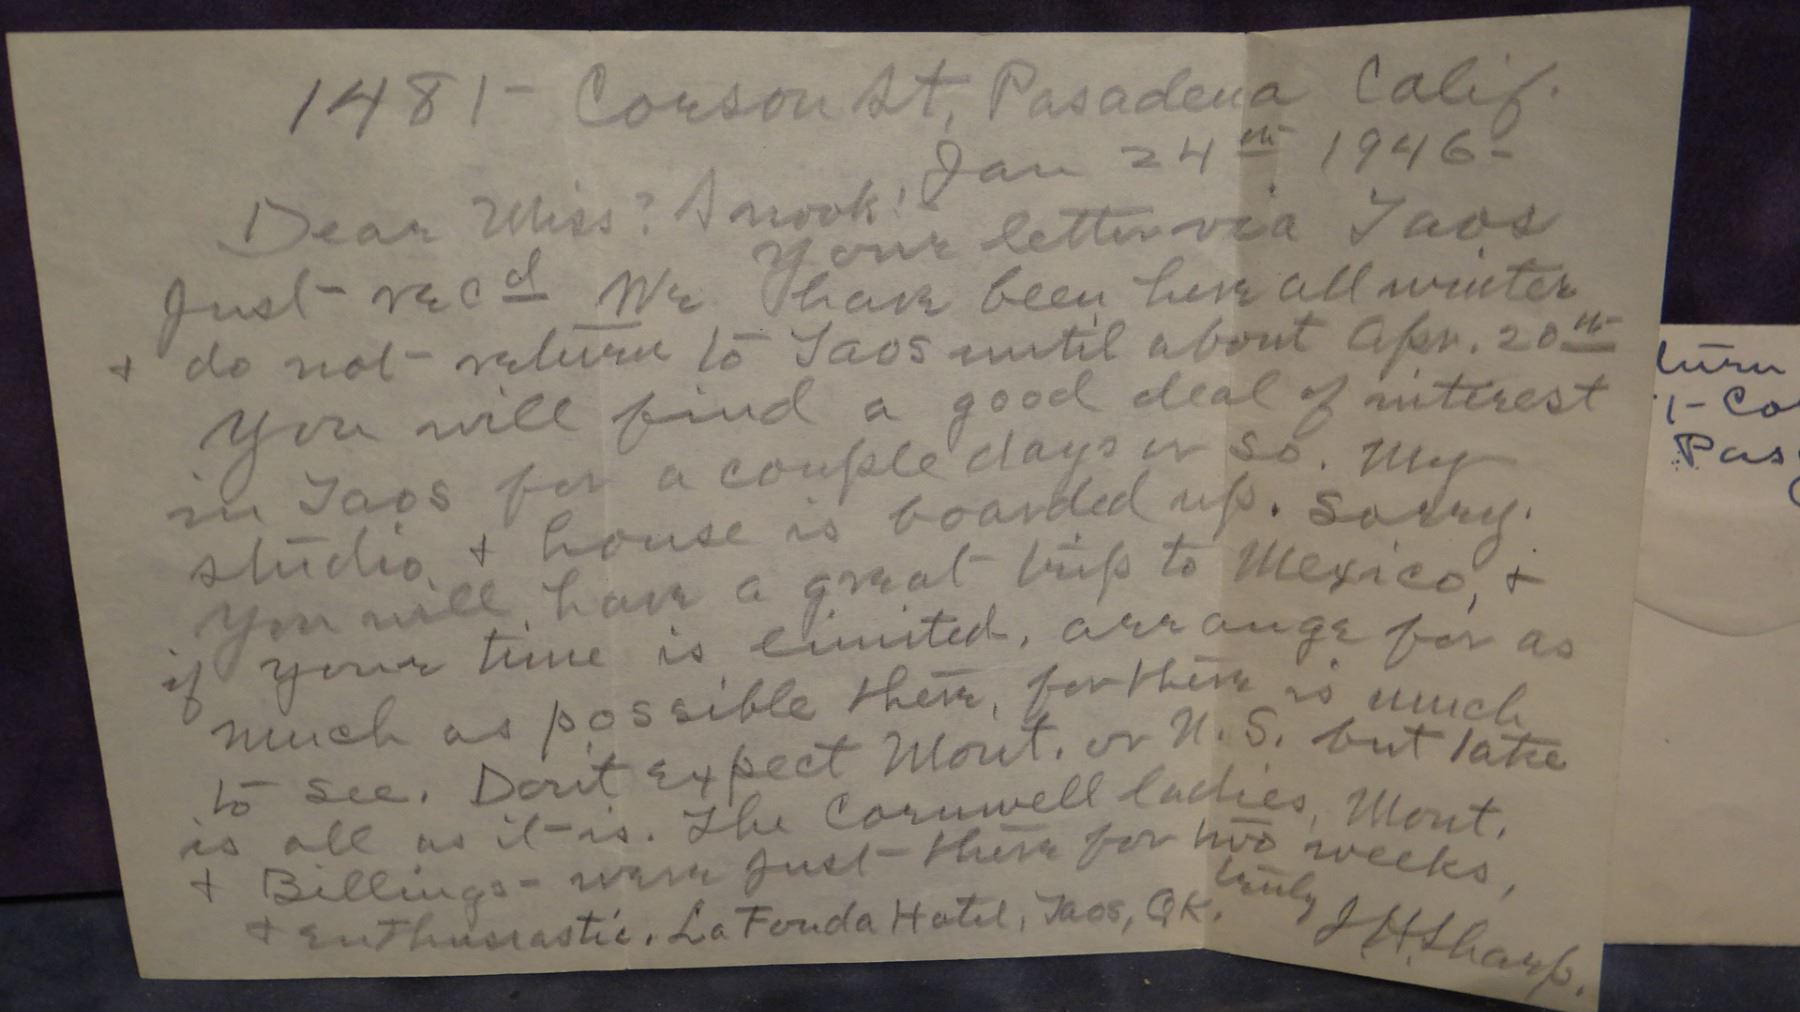 1481- Corson St, Pasadena Calif.
Jan 24th 1946-
Dear Miss? Snook!
Your letter via Taos
Just recd We have been here all winter
+ do not return to Taos until about Apr. 20th
You will find a good deal of interest
in Taos for a couple days or so. My
studio + house is boarded up. Sorry.
You will have a great trip to Mexico, +
if your time is limited, arrange for as
much as possible there, for there is much
to see. Don't expect Mont. or U.S. but take
is all as it is. The Cornwell ladies, Mont.
+ Billings- were just there for two weeks,
+ enthusiastic. La Fonda Hotel, Taos, OK.
truly
JHSharp.
turn
1-Co
Pas